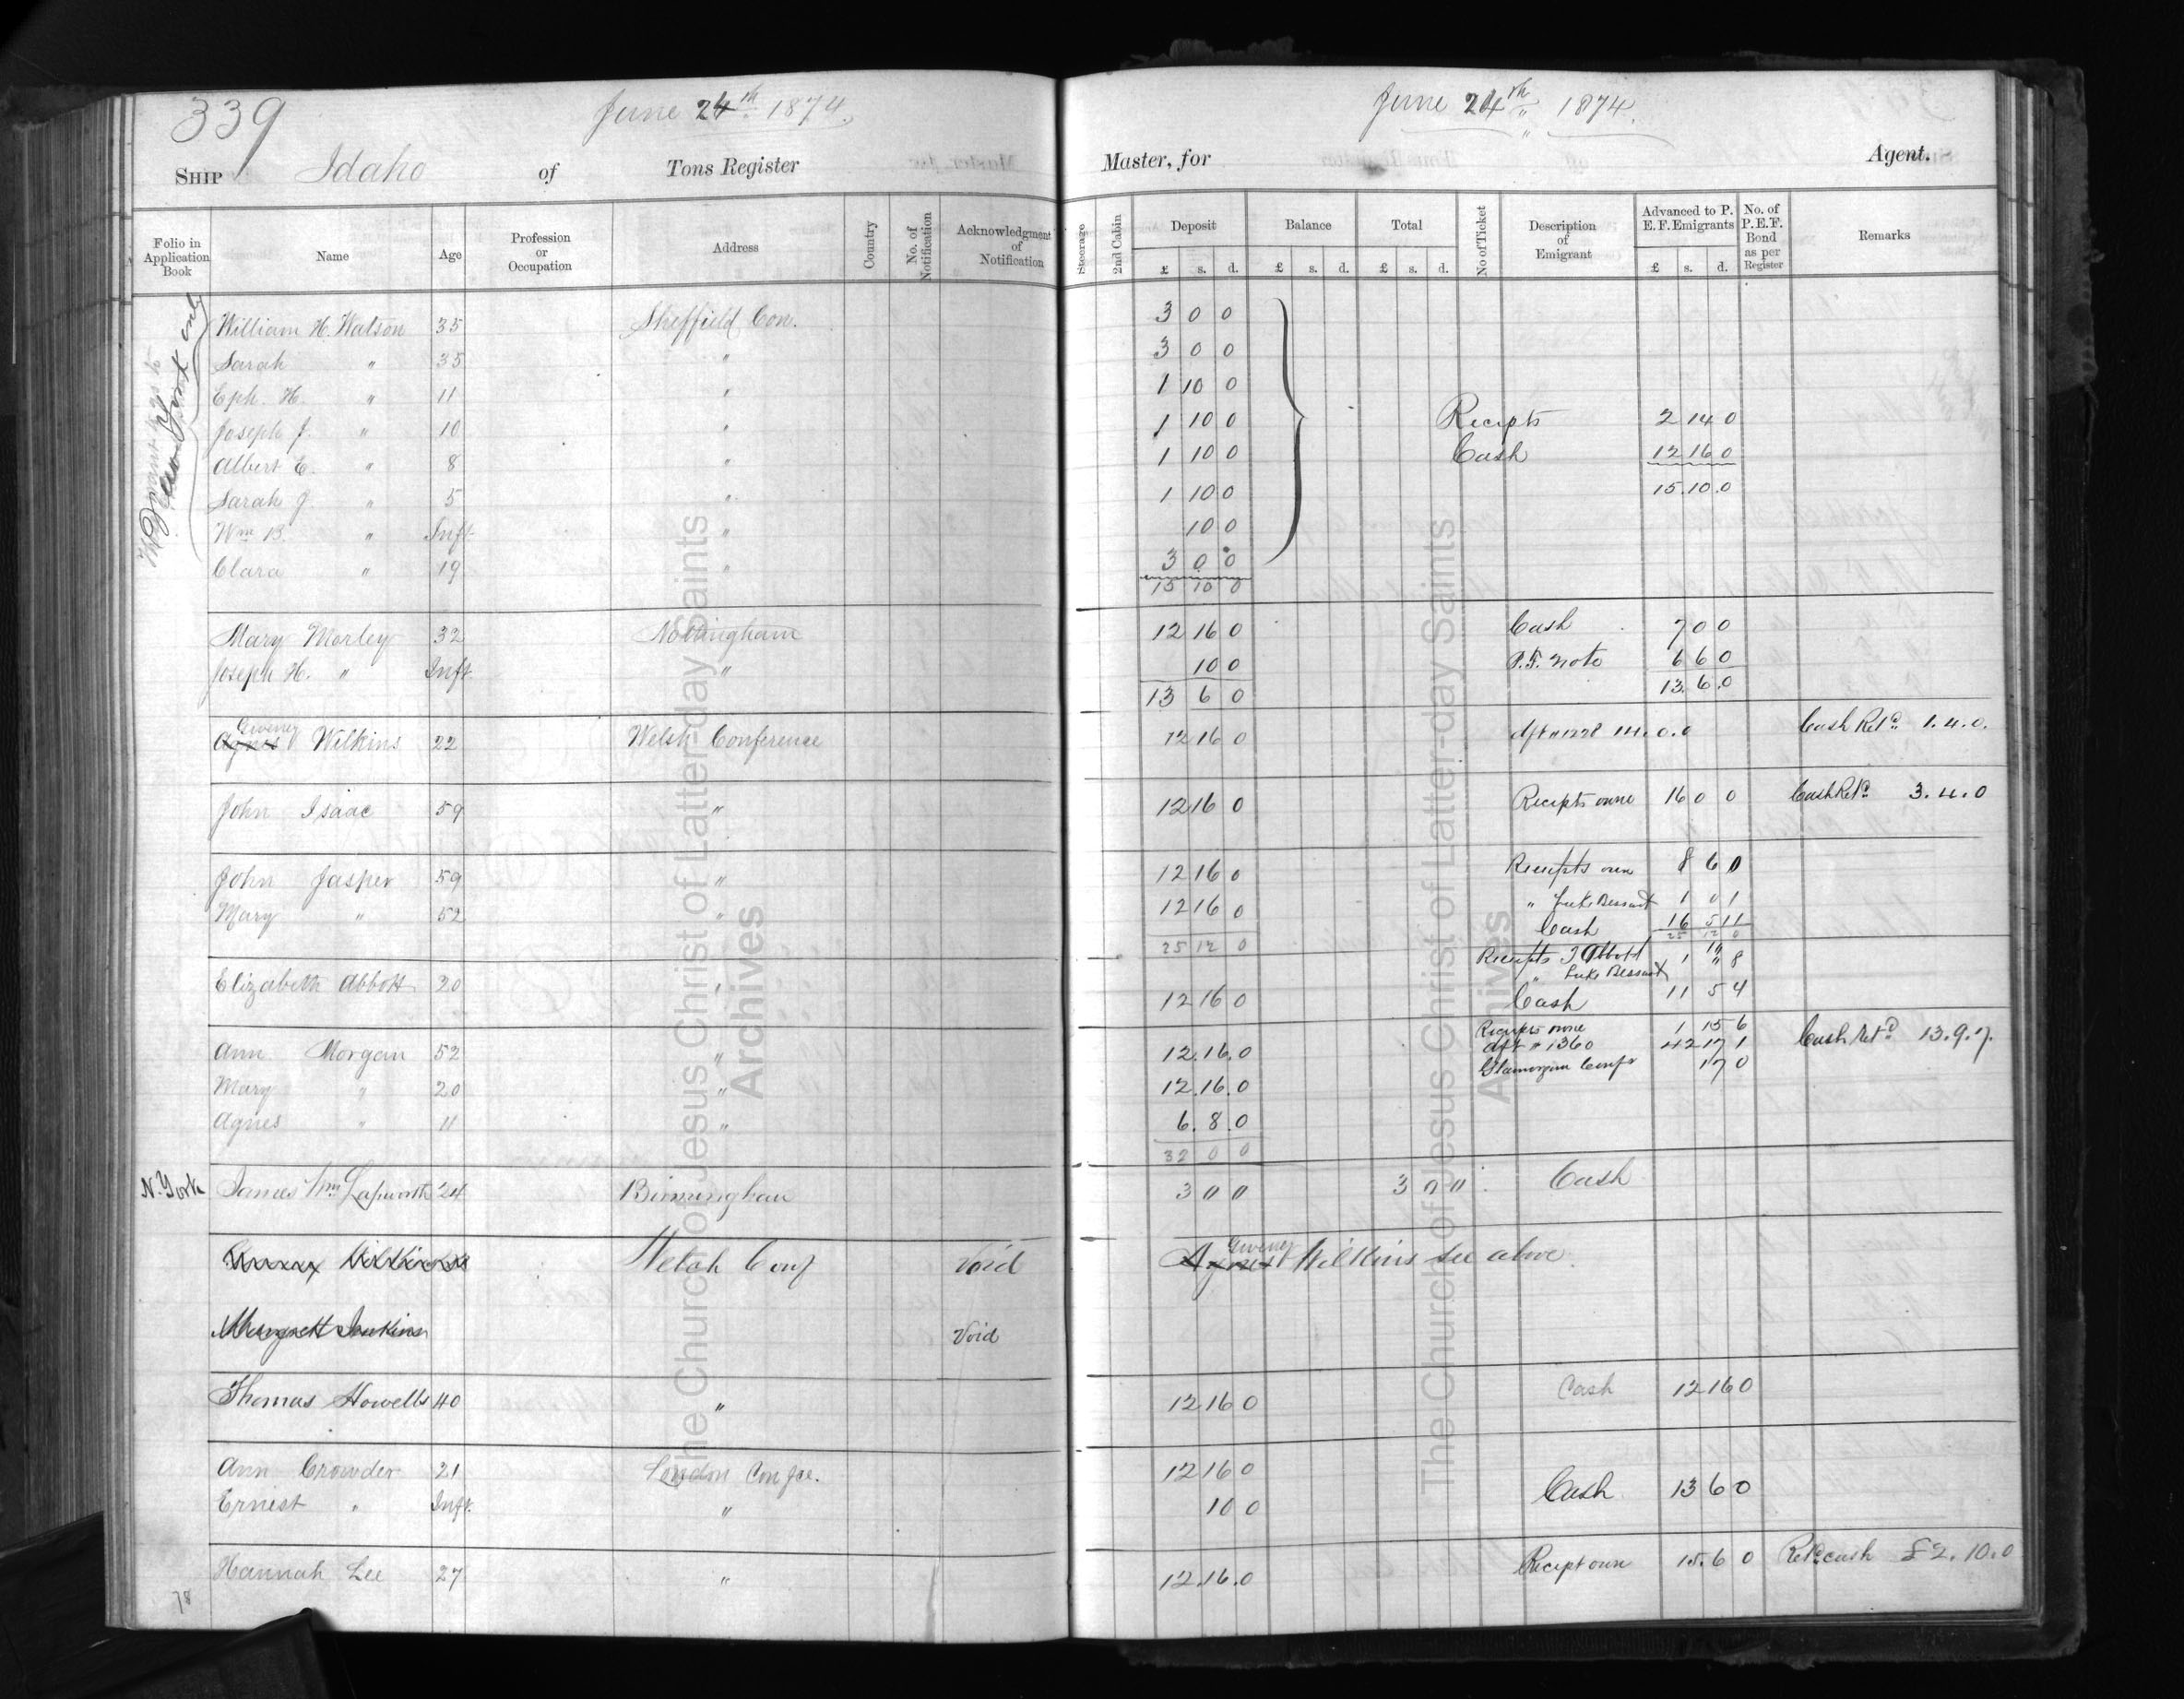 339
June 24th 1874.
June 24th 1874.
SHIP Idaho of Tons Register
Master, for Agent.
Folio in Application Book Name Age Profession or Occupation Address Country No. of Notification Acknowledgment of Notification
Steerage 2nd Cabin Deposit £ s. d. Balance £ s. d. Total £ s. d. No of Ticket Description of Emigrant Advanced to P. E. F. Emigrants £ s. d. No. of P.E.F. Bond as per Register Remarks
New York only
William H. Watson 35 Sheffield Con. 3 0 0
Sarah " 35 " 3 0 0
Eph. H. " 11 " 1 10 0
Joseph J. " 10 " 1 10 0 Recipts 2 14 0
Albert E. " 8 " 1 10 0 Cash 12 16 0
Sarah J. " 5 " 1 10 0 15.10.0
Wm B. " Inft. " 10 0
Clara " 19 " 3 0 0
15 10 0
Mary Morley 32 Nottingham 12 16 0 Cash 7 0 0
Joseph H. " Inft. " 10 0 P.F. Note 6 6 0
13 6 0 13.6.0
Agnes Gweny Wilkins 22 Welsh Conference 12 16 0 dft " 1228 14.0.0 Cash Retd. 1.4.0.
John Isaac 59 " 12 16 0 Recipts owne 16 0 0 Cash Retd. 3.4.0
John Jasper 59 " 12 16 0 Receipts own 8 6 0
Mary " 52 " 12 16 0 " Luke Bessant 1 0 1
25 12 0 Cash 16 5 11
25 12 0
Receipts J Abbott
Elizabeth Abbott 20 " 12 16 0 " Luke Bessant 1 " 8
Cash 11 5 4
Ann Morgan 52 " 12.16.0 Recipts owne 1 15 6 Cash Retd. 13.9.7.
Mary " 20 " 12.16.0 dft " 1360 42 17 1
Agnes " 11 " 6.8.0 Glamorgan Confs 17 0
32 0 0
N. York James Wm Lapworth 24 Birmingham 3 0 0 3 0 " Cash
Welsh Conf Void Agnes Gweny Wilkins see above
Margrett Jenkins Void
Thomas Howells 40 " 12 16 0 Cash 12 16 0
Ann Crowder 21 London Confce. 12 16 0
Ernest " Inft. " 10 0 Cash 13 6 0
Hannah Lee 27 " 12.16.0 Recipt own 15.6 0 Retd cash £2.10.0
78
The Church of Jesus Christ of Latter-day Saints
Archives
The Church of Jesus Christ of Latter-day Saints
Archives